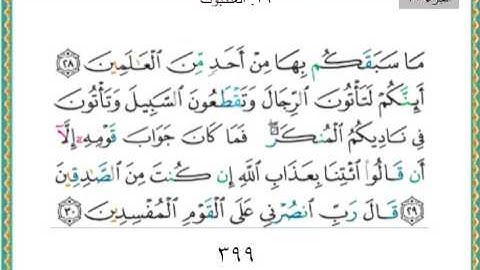 ٢٩. العنكبوت
مَا سَبَقَكُم بِهَا مِنْ أَحَدٍ مِّنَ ٱلْعَٰلَمِينَ ٢٨
أَئِنَّكُمْ لَتَأْتُونَ ٱلرِّجَالَ وَتَقْطَعُونَ ٱلسَّبِيلَ وَتَأْتُونَ
فِى نَادِيكُمُ ٱلْمُنكَرَ ۖ فَمَا كَانَ جَوَابَ قَوْمِهِۦٓ إِلَّآ
أَن قَالُوا۟ ٱئْتِنَا بِعَذَابِ ٱللَّهِ إِن كُنتَ مِنَ ٱلصَّٰدِقِينَ
٢٩ قَالَ رَبِّ ٱنصُرْنِى عَلَى ٱلْقَوْمِ ٱلْمُفْسِدِينَ ٣٠
٣٩٩